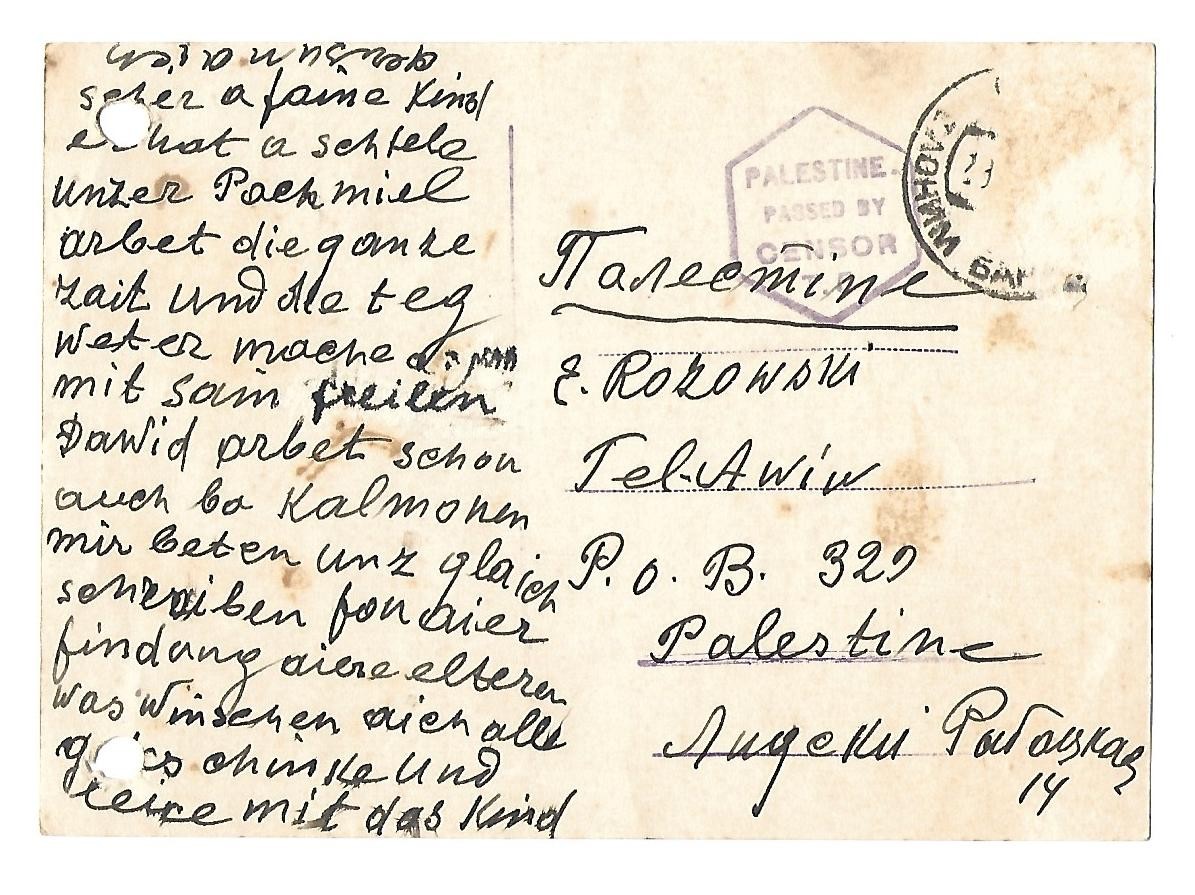 scher a faine Kind
hat a schtele
unzer Pachmiel
arbet die ganze
zait und die teg
weter mache
mit sain freilen
Dawid arbet schon
auch ba Kalmonen
mir beten unz glaich
schraiben fon aier
findung aiere elteren
was winschen aich alle
chinke und
mit das Kind
PALESTINE
PASSED BY
CENSOR
Палестіне
E. Rozowski
Tel-Awiw
P. o. B. 329
Palestine
Лидски
14